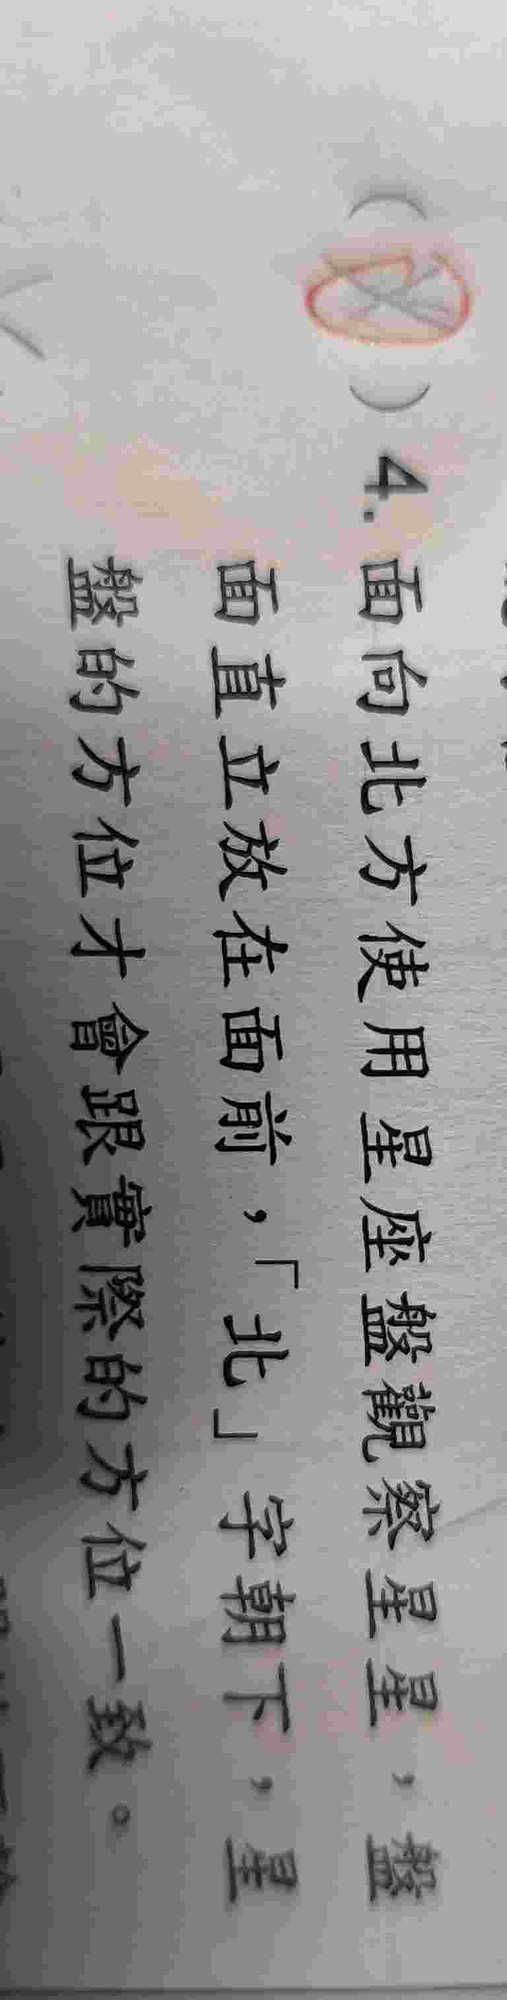 ( ) 4. 面向北方使用星座盤觀察星星，盤
面直立放在面前，「北」字朝下，星
盤的方位才會跟實際的方位一致。